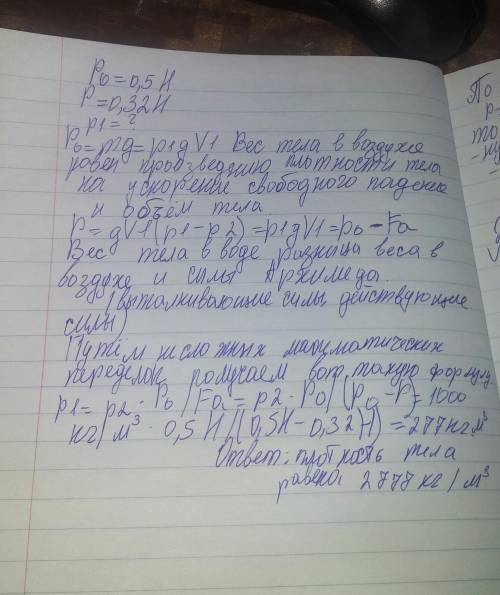 P₀ = 0,5 Н
P = 0,32 Н
р1 = ?
P₀ = mg = p1gV1 Вес тела в воздухе
равен произведению плотности тела
на ускорение свободного падения
и объём тела
P = gV1(p1-p2) = p1gV1 = p₀ - Fa
Вес тела в воде разница веса в
воздухе и силы Архимеда.
(выталкивающие силы действующие
силы)
Путём несложных математических
переделок получаем вот такую формулу
p1 = p2 · P₀ / Fa = p2 · P₀ / (P₀ - P) = 1000
кг/м³ · 0,5 Н / (0,5Н - 0,32Н) = 277кг м³
Ответ: плотность тела
равена 2777 кг / м³
По
р=
то